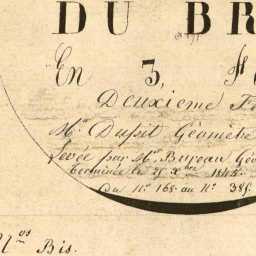 DU BR
En 3, F
Deuxieme Fe
Mr. Dupit Géomètre
Levée par Mr. Bureau Géo
Terminée le 25 Xbre 1845.
Du No. 168. au No. 389.
Nos Bis.